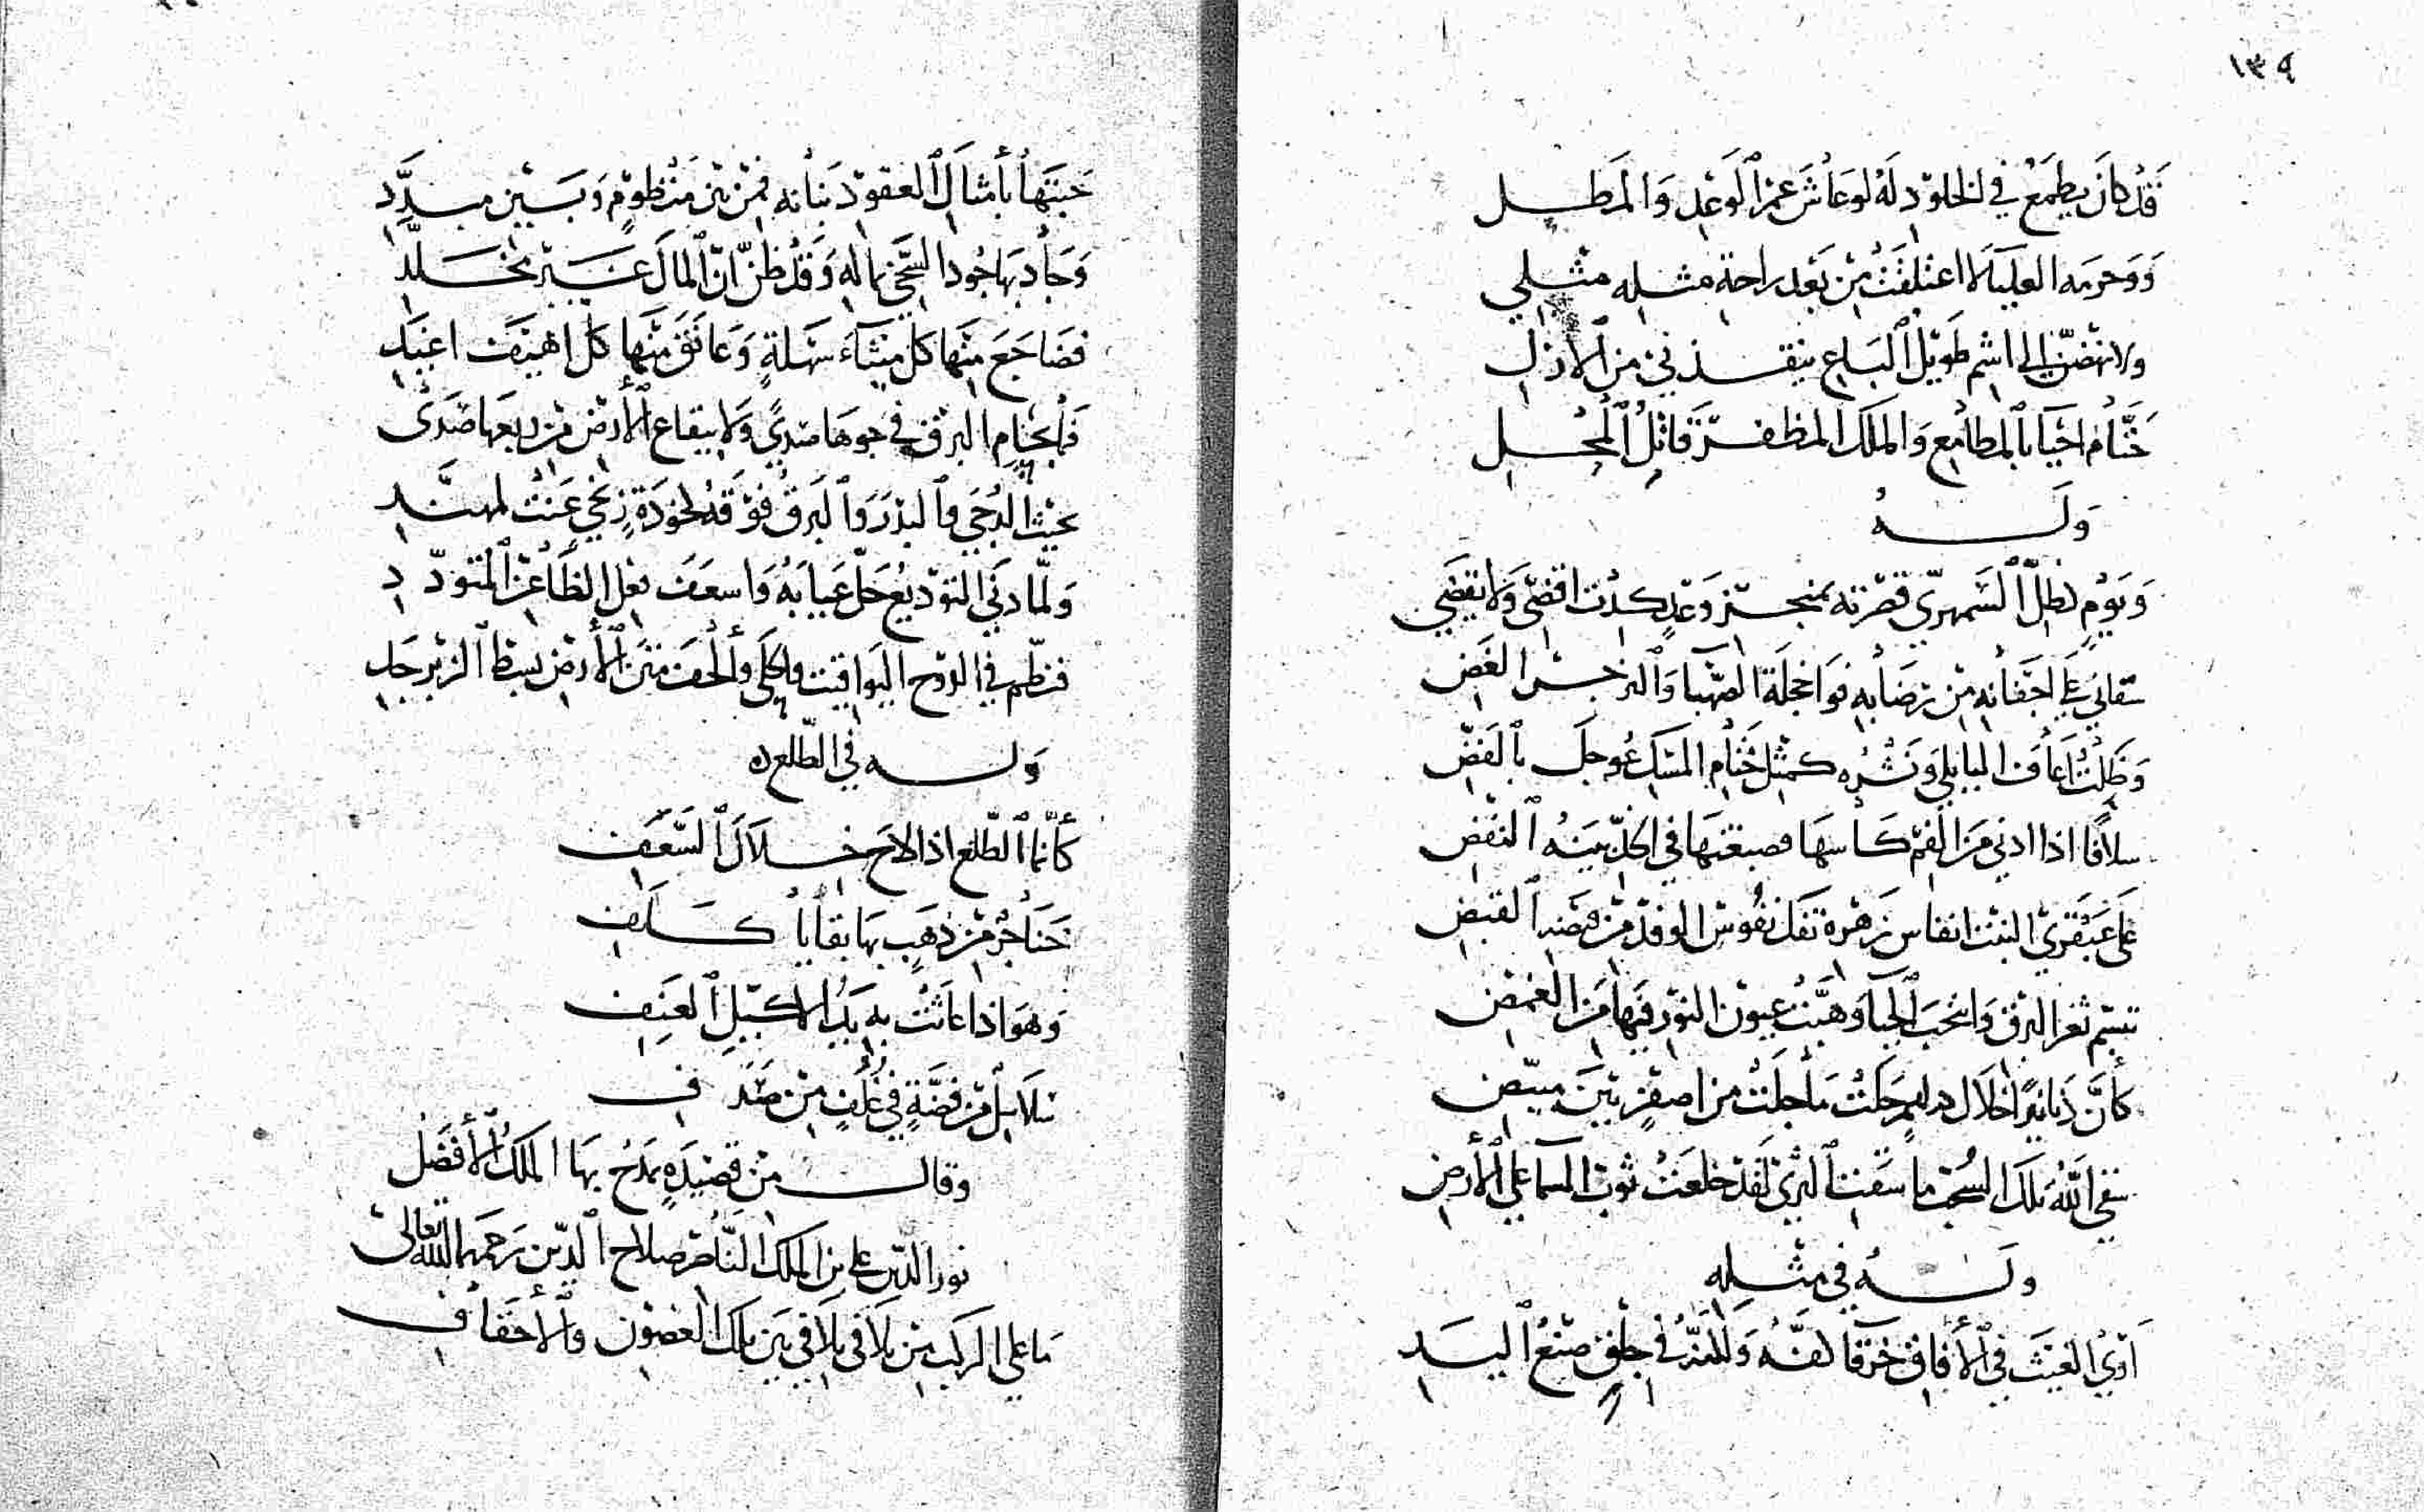 ١٣٩
قَدْ كانَ يطمَعُ في الخلودِ لَهُ لوْ عاشَ عمرَ الوَعْدِ وَالمَطلِ
وَوحرمة العلياء لا اعتلقَتْ مِنْ بَعْدِ راحةِ مثلهِ مثلي
ولانهضنّ إلى اشم طويْل البَاعِ ينقذني من الأزل
حَتَّامَ احْيَا بالمطامِعِ وَالملك المظفّر قَاتِلُ المحْلِ
وَلَهُ
وَيَوْمٍ كظلّ السَّمهريّ قصرْته بمنجز وَعْدٍ كدْتُ اقضى وَلا يقضي
سقاني على اجفَانهِ مِنْ رضَابهِ فوَاخجلَة الصّهبا وَالنرجس الغَض
وَظَلْتُ اعافُ البابلي وَنشْرُه كمثلِ ختَام المسْكِ عُوجلَ بالفَضّ
سلافا اذا ادني مَن الفم كاسهَا فصبغتهَا في الخدّ بيّنةُ النفْضِ
عَلى عَبْقَريّ النبْت انفاس زَهْرة تفك نفُوسَ الوفْد مِنْ قبضة القبْضِ
تبسّم ثغر البرْق وَانتحَبَ الحيَا وَهبَّتْ عيون النوْر فيهَا مَنَ الغمْضِ
كأنَّ دَنانيرًا خلال دراهمٍ حَكتْ مَا جلَتْ من اصفرٍ بيْنَ مبيضِ
سقى اللّهُ تلكَ السُّحْبَ ما سَقت الثرى لَقَدْ خلعَتْ ثوْبَ السّما على الأرضِ
ولَهُ في مثلهِ
اَرَى الغيْثَ في الأفاق خرْقا لفنّه وَللهِ في جلقٍ صنْعُ اليَدِ
حَبتهَا بأمثال العقودِ بَنانهِ فمنْ بيْن منْظومٍ وَبَيْن مبدَّدِ
وَجادَ بهَا جُودَ السَّخيّ بمالهِ وَقدْ ظنّ انّ المالَ غيْر مخلّدِ
فضَاجَعَ منْهَا كل ميْثاء سَهلةٍ وَعانَقَ منْهَا كلّ اهْيَفَ اغيَدِ
فَما لحُسَامِ البرق في جوهَا صَدِيً وَلا لبقاعِ الأرض مْن ربعهَا صَدَى
بحيْثُ الدُجَى والبدْرَ وَالبَرقُ فوْقهُ لخوذَةِ زنجي عَنَتْ لمهنّدِ
وَلمّا دَنَى التوْديعُ حَلّ عَيابَهُ وَاسعَفَ فعل الظَّاعن المتودّدِ
فنظّم في الدوْح اليَواقيت والحلى وألحَفَ متْنَ الأرض بسْطَ الزبرجَدِ
وَلَه في الطّلع
كأنّما الطّلع اذا لاحَ خلالَ السَّعَفِ
خَناجرٌ مْن ذهَبٍ بهَا بقايَا كلَفِ
وَهوَ اذا عَاثَتْ بهِ يَدُ الاكيلِ العَنِفِ
سَلاسلٌ مْن فضَّةٍ في غُلُفٍ مِنْ صَدَفِ
وقالَ مِنْ قصيْدَةٍ يمَدَحُ بهَا الملكُ الأفضَلُ
نورَ الدّين على بن الملك النَّاصر صلاح الدّيْن رَحمَهما الله تعالى
مَا على الركب مِنْ تلافى تلافي بَيْن تلكَ الغصُون والأحقَافِ